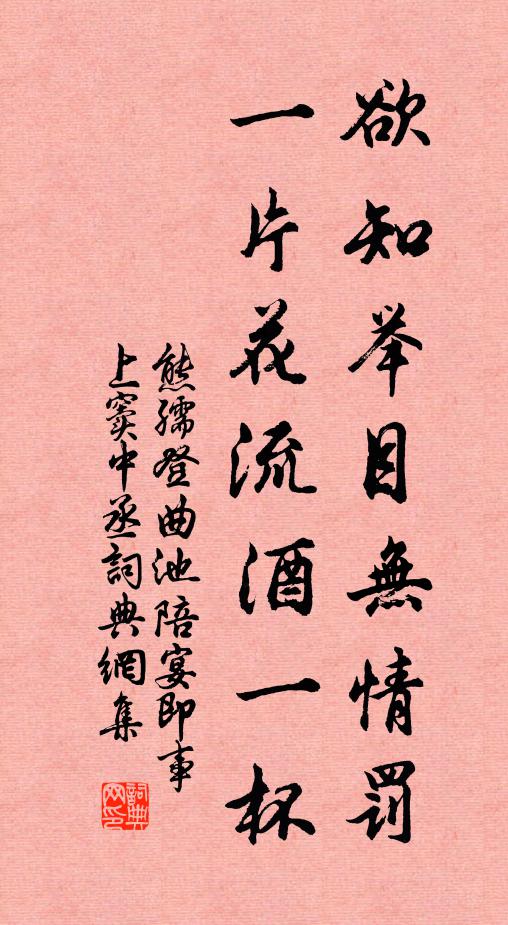 欲知举目無情罰
一片花流酒一杯
熊孺登曲池陪宴即事
上窦中丞詞典網集
詞典
网印